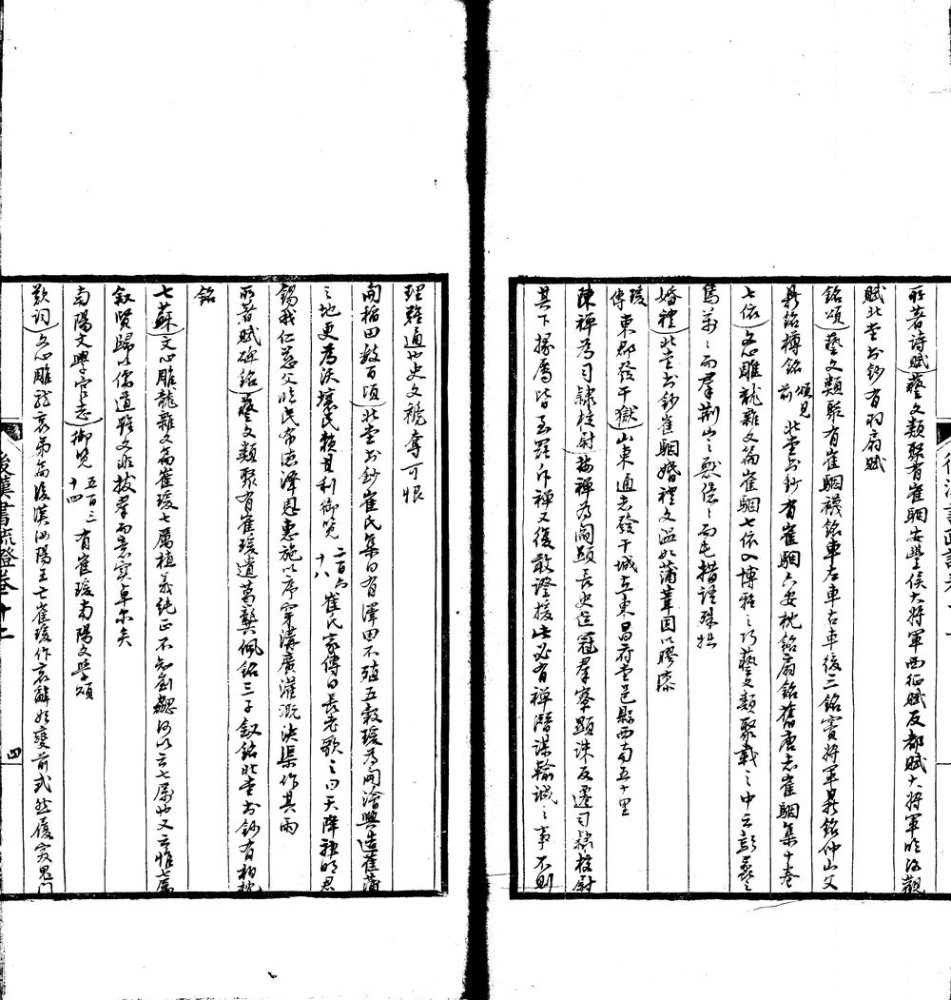 所著诗賦）藝文類聚有崔駰安豐侯大將軍西征賦反都賦大將軍臨洛觀
賦北堂书鈔有羽扇賦
銘頌）藝文類聚有崔駰襪銘車左車右車後三銘竇將軍鼎銘仲山父
鼎銘樽銘頌見前北堂书鈔有崔駰六安枕銘扇銘舊唐志崔駰集十卷
七依）文心雕龍雜文篇崔駰七依入博雅之巧藝文類聚載之中云
之而羣荆山之獸俗之而毛措諸
婚禮）北堂书鈔崔駰婚禮文温如蒲葦固以膠漆
瑗傳東郡發干獄）山東通志發干城在東昌府堂邑縣西南五十里
陳禪為司隸校尉）按禪為閻顯長史冠羣寮顯誅反遷司隸校尉
其下掾屬皆至罪斥禪又後敢證援此必有禪潛謀輸誠之事不則
理難通也史文穢奪可恨
開稻田數百頃）北堂书鈔崔氏集曰有澤田不殖五穀瑗為開澮興造蓷蒲
之地更為沃壤民賴其利御覽二百六十八崔氏家傳曰長老歌之曰天降神明君
錫我仁慈父臨民布德澤恩惠施以序穿溝廣灌溉决渠作甚雨
所著賦碑銘）藝文類聚有崔瑗遺葛龔佩銘三子釵銘北堂书鈔有柏枕
銘
七蘇）文心雕龍雜文篇崔瑗七厲植義純正不知劉勰何以云七厲也又云惟七厲
叙賢歸以儒道雖文非拔羣而意實卓尔矣
南陽文學官志）御覽五百三十四有崔瑗南陽文學頌
歎词）文心雕龍哀弔篇後漢汝陽王亡崔瑗作哀辭始變前式然履突鬼门
後漢書疏證卷十二
四